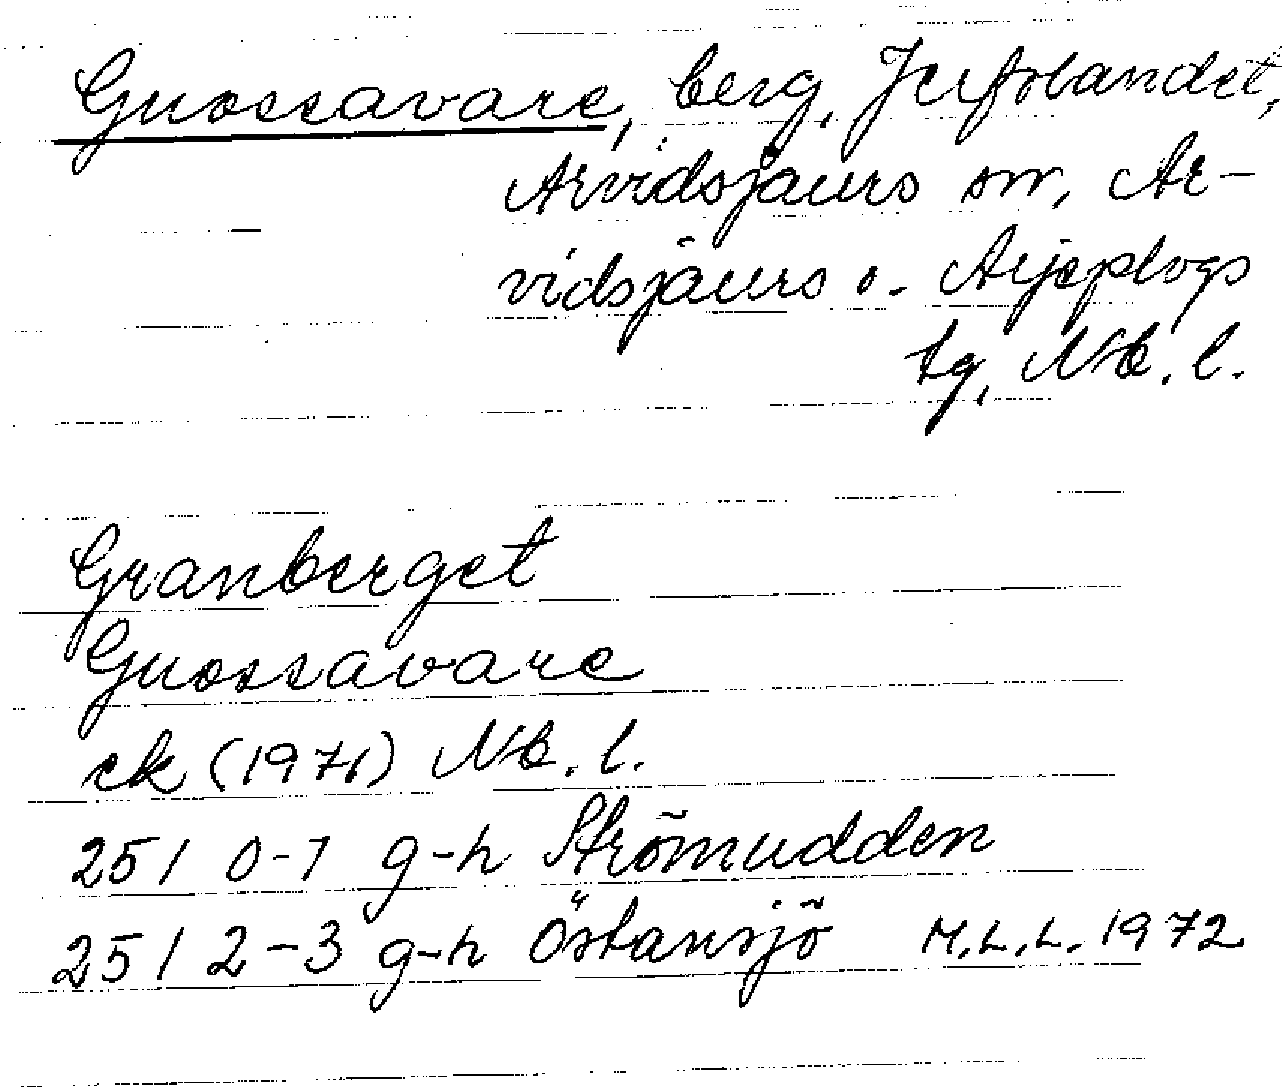 Guossavare, berg, Jerfolandet,
Arvidsjaurs sn, Ar-
vidsjaurs o. Arjeplogs
tg, Nb. l.
Granberget
Guossavare
ek (1971) Nb. l.
25 I 0-1 g-h Strömudden
25 I 2-3 g-h Östansjö M.L.L. 1972